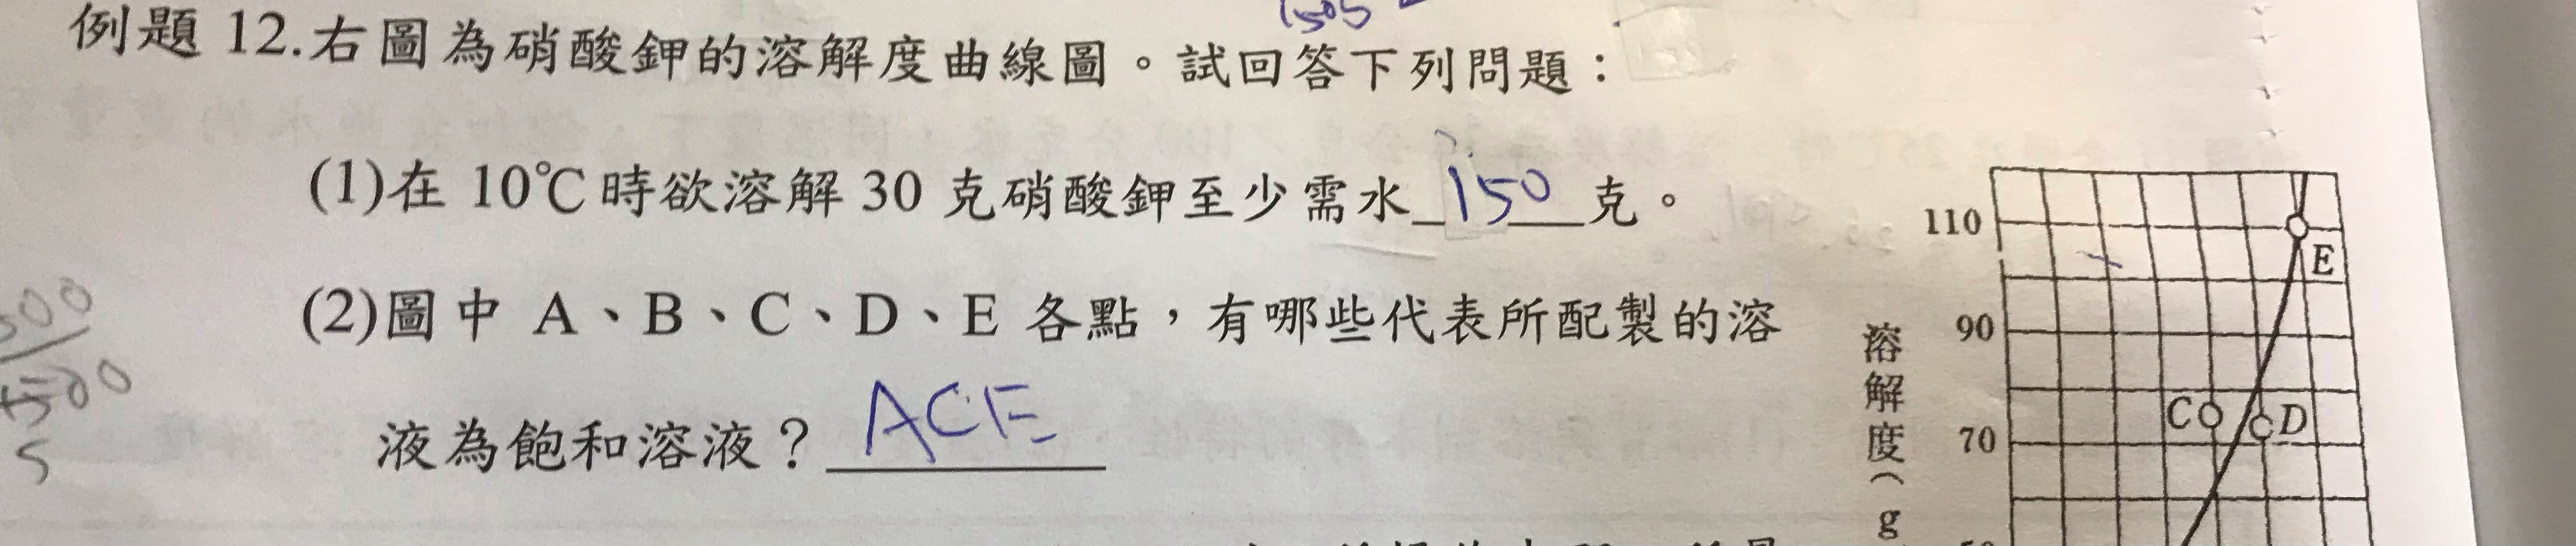 1505
例題 12.右圖為硝酸鉀的溶解度曲線圖。試回答下列問題：
(1)在 10℃時欲溶解 30 克硝酸鉀至少需水 150 克。
(2)圖中 A、B、C、D、E 各點，有哪些代表所配製的溶
液為飽和溶液？ ACE
500
1500
5
110
E
90
C D
70
溶解度（g